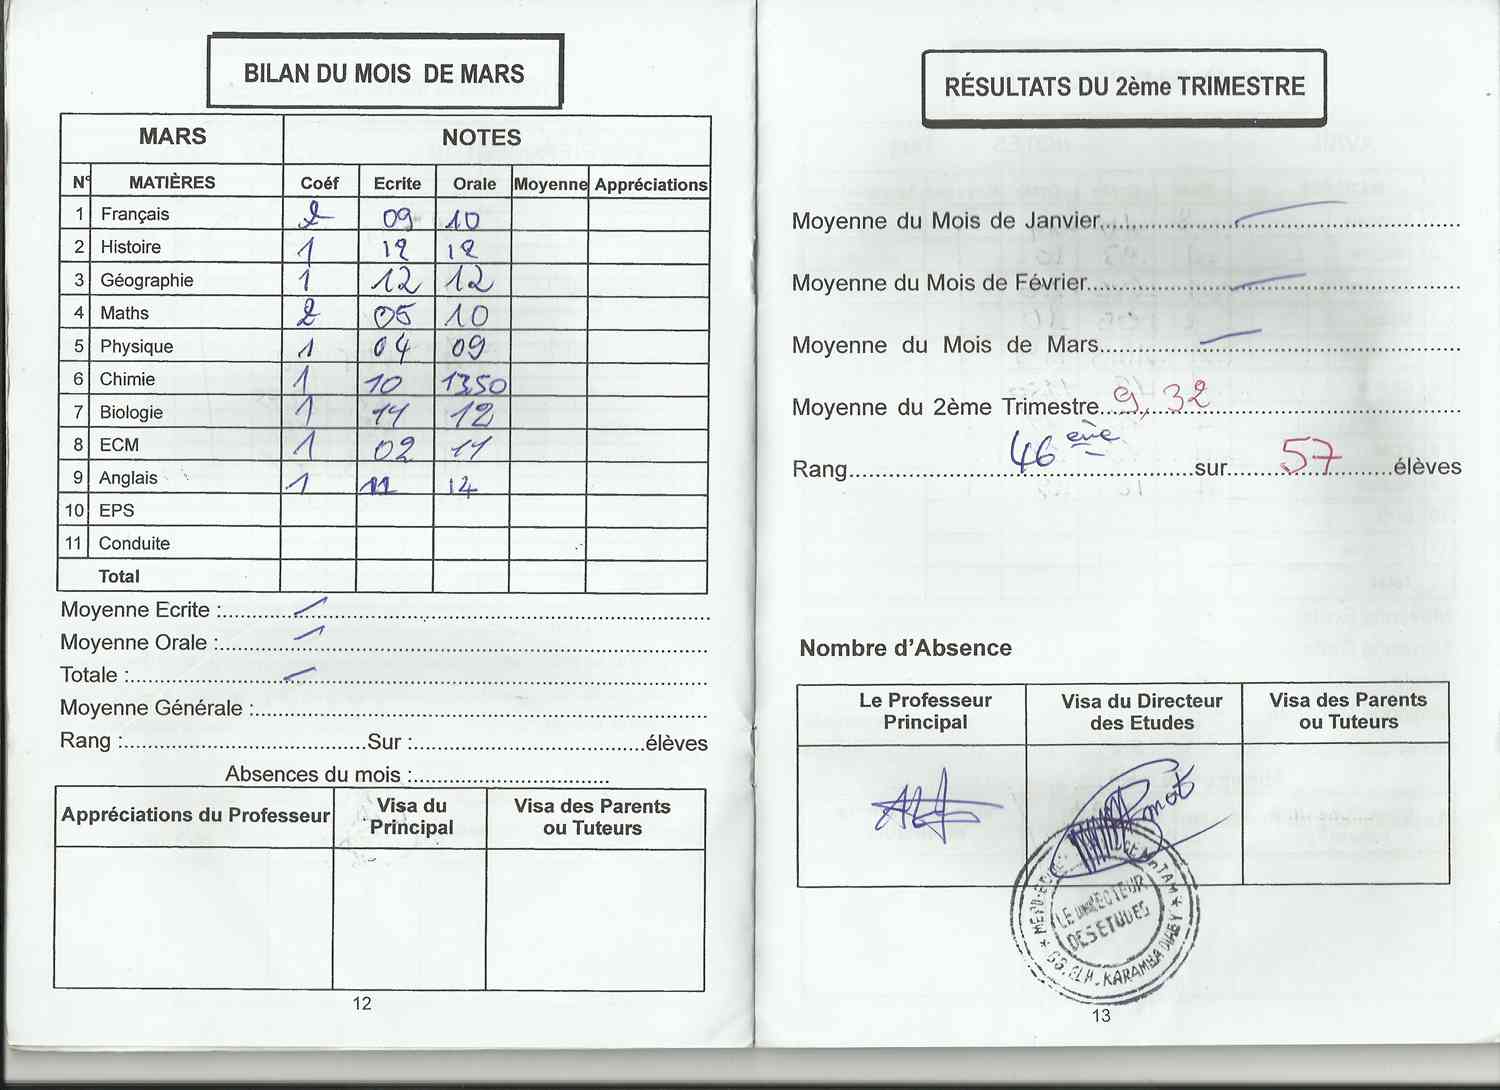 BILAN DU MOIS DE MARS
MARS NOTES
N° MATIÈRES Coéf Ecrite Orale Moyenne Appréciations
1 Français 2 09 10
2 Histoire 1 12 12
3 Géographie 1 12 12
4 Maths 2 05 10
5 Physique 1 04 09
6 Chimie 1 10 13,50
7 Biologie 1 11 12
8 ECM 1 02 11
9 Anglais 1 11 14
10 EPS
11 Conduite
Total
Moyenne Ecrite :
Moyenne Orale :
Totale :
Moyenne Générale :
Rang : Sur : élèves
Absences du mois :
Appréciations du Professeur
Visa du Principal
Visa des Parents ou Tuteurs
12
RÉSULTATS DU 2ème TRIMESTRE
Moyenne du Mois de Janvier
Moyenne du Mois de Février
Moyenne du Mois de Mars
Moyenne du 2ème Trimestre 9,32
Rang 46 ème sur 57 élèves
Nombre d'Absence
Le Professeur Principal
Visa du Directeur des Etudes
Visa des Parents ou Tuteurs
LE DIRECTEUR
DES ETUDES
KARAMBA DIABY
13